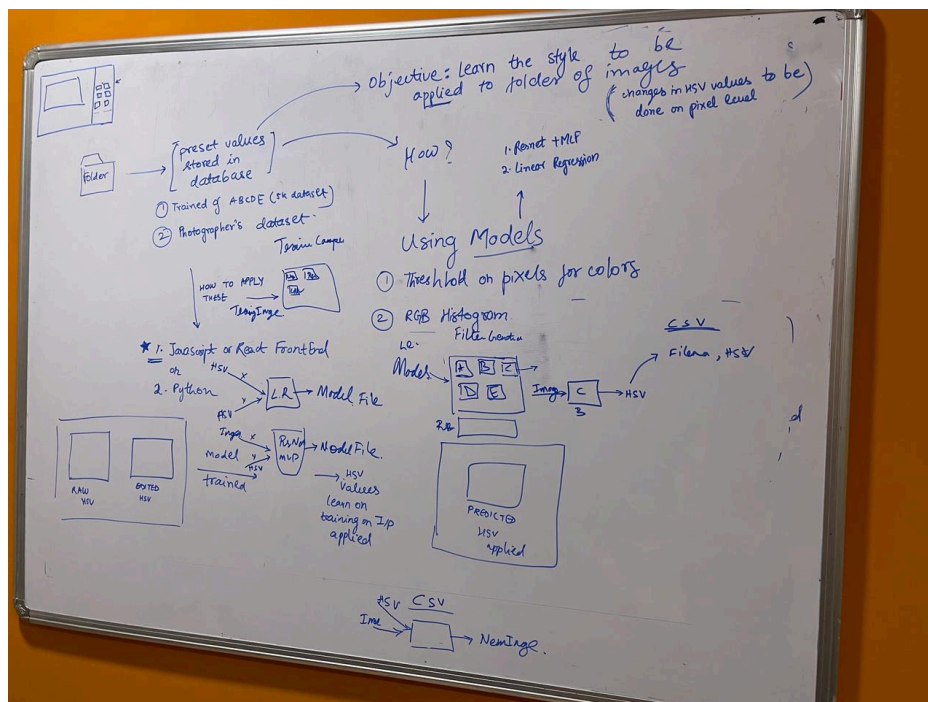 Objective: Learn the style to be
applied to folder of images
(changes in HSV values to be
done on pixel level)
Folder
[preset values
stored in
database]
① Trained of ABCDE (5k dataset)
② Photographer's dataset.
How?
1. Resnet + MLP
2. Linear Regression
Using Models
① Threshhold on pixels for colors
② RGB Histogram
HOW TO APPLY
THESE
1. Javascript or React FrontEnd
or
2. Python
HSV X
HSV Y
L.R
Model File
X
Y
HSV
MLP
Model File.
model
trained
HSV
values
learn on
training on I/p
applied
RAW
HSV
EDITED
HSV
Models
A B C
D E
C
B
HSV
CSV
PREDICTED
HSV
applied
d
HSV CSV